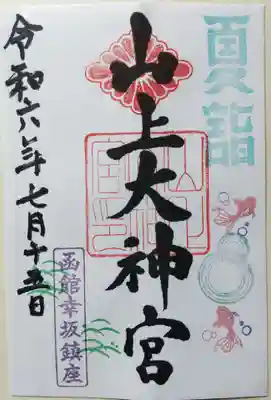 夏詣
山上大神宮
函館幸坂鎮座
令和六年七月十五日